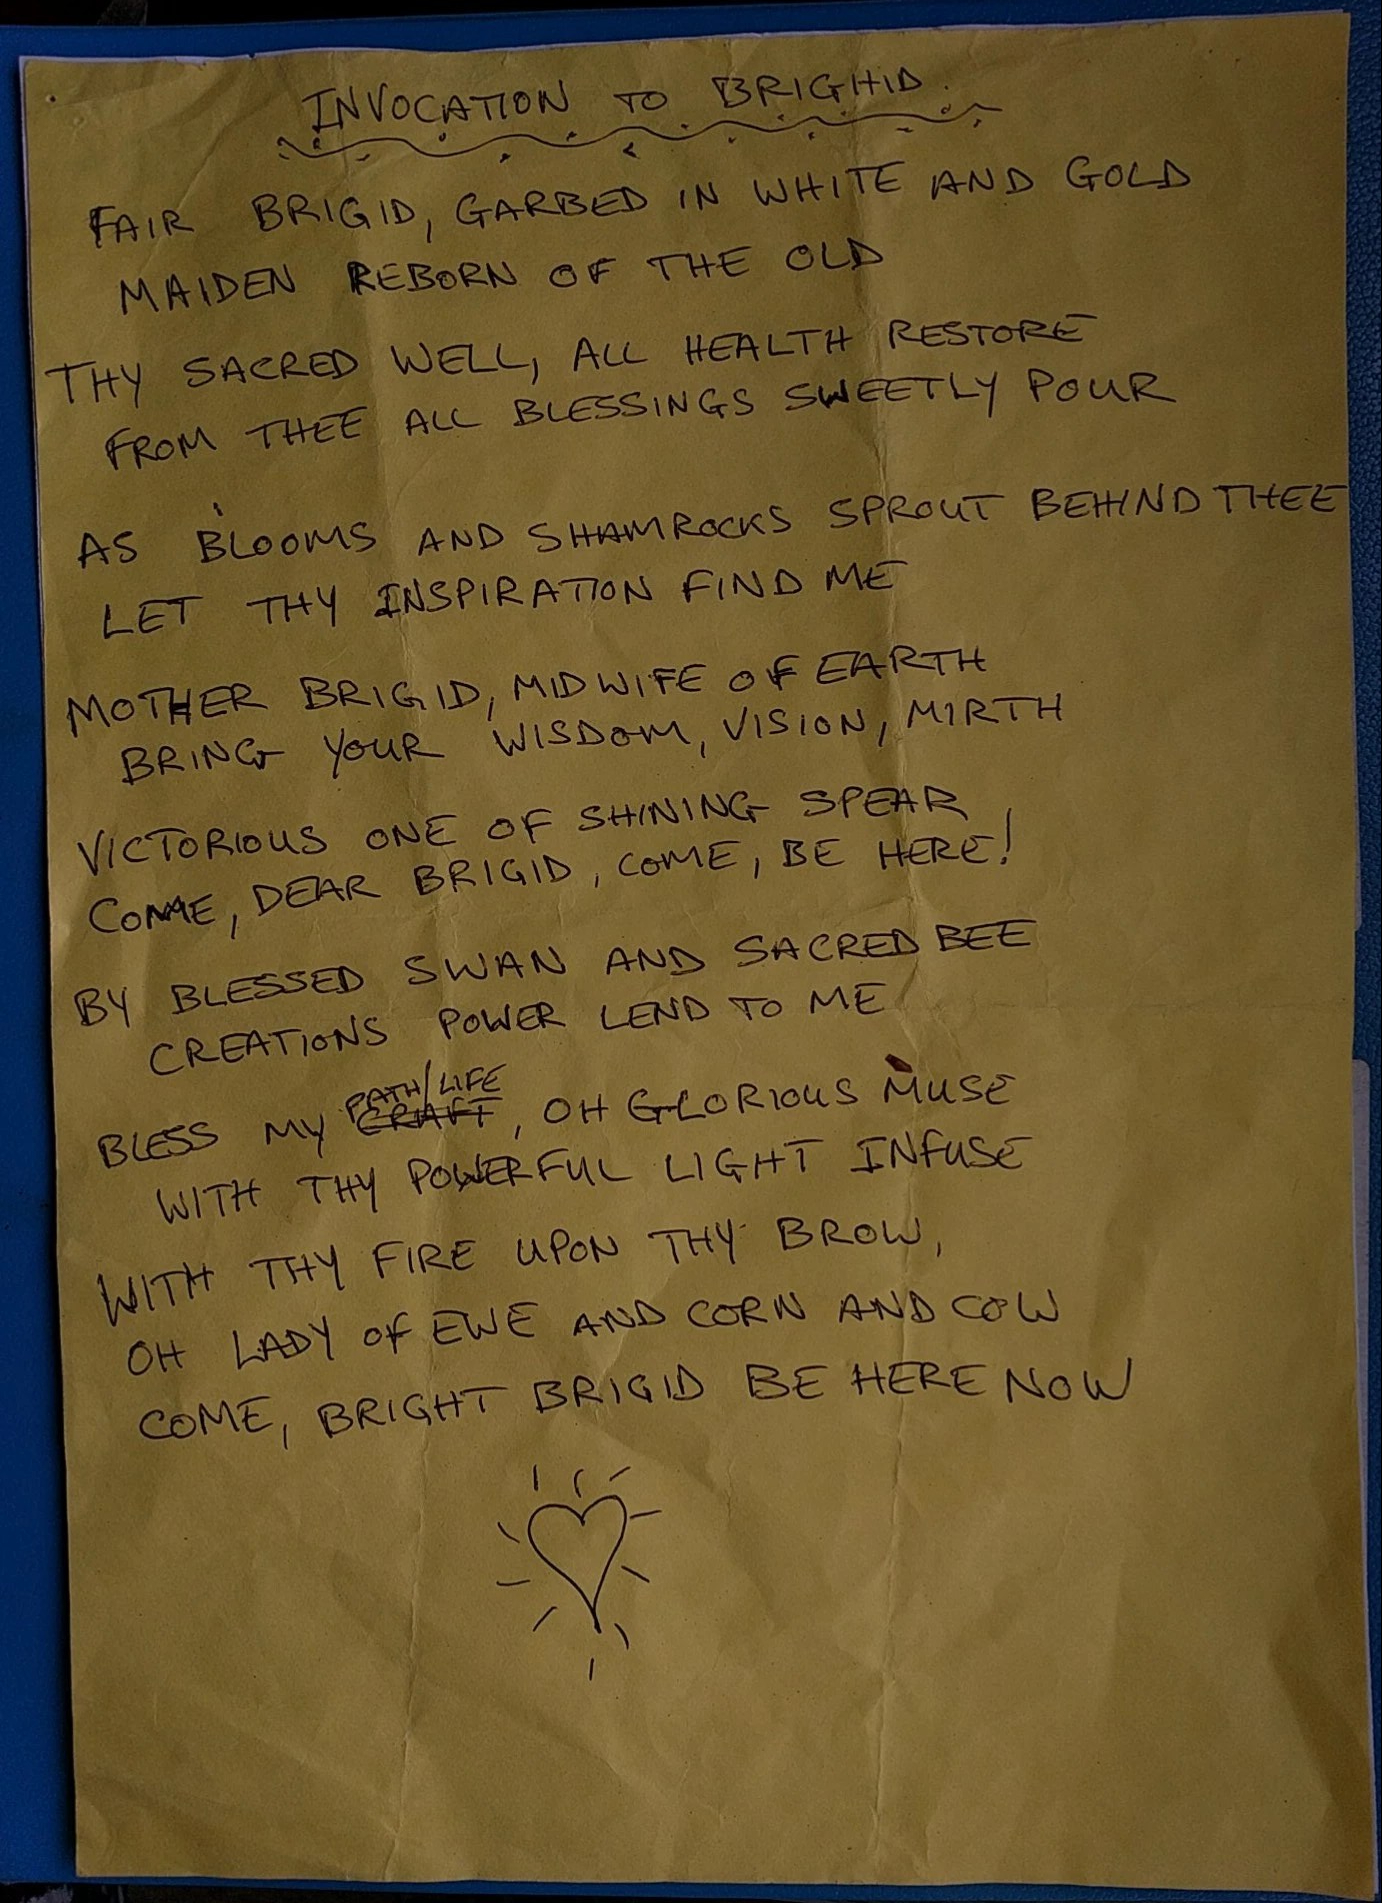 INVOCATION TO BRIGHID.
FAIR BRIGID, GARBED IN WHITE AND GOLD
MAIDEN REBORN OF THE OLD
THY SACRED WELL, ALL HEALTH RESTORE
FROM THEE ALL BLESSINGS SWEETLY POUR
AS BLOOMS AND SHAMROCKS SPROUT BEHIND THEE
LET THY INSPIRATION FIND ME
MOTHER BRIGID, MIDWIFE OF EARTH
BRING YOUR WISDOM, VISION, MIRTH
VICTORIOUS ONE OF SHINING SPEAR
COME, DEAR BRIGID, COME, BE HERE!
BY BLESSED SWAN AND SACRED BEE
CREATIONS POWER LEND TO ME
PATH/LIFE
BLESS MY CRAFT, OH GLORIOUS MUSE
WITH THY POWERFUL LIGHT INFUSE
WITH THY FIRE UPON THY BROW,
OH LADY OF EWE AND CORN AND COW
COME, BRIGHT BRIGID BE HERE NOW